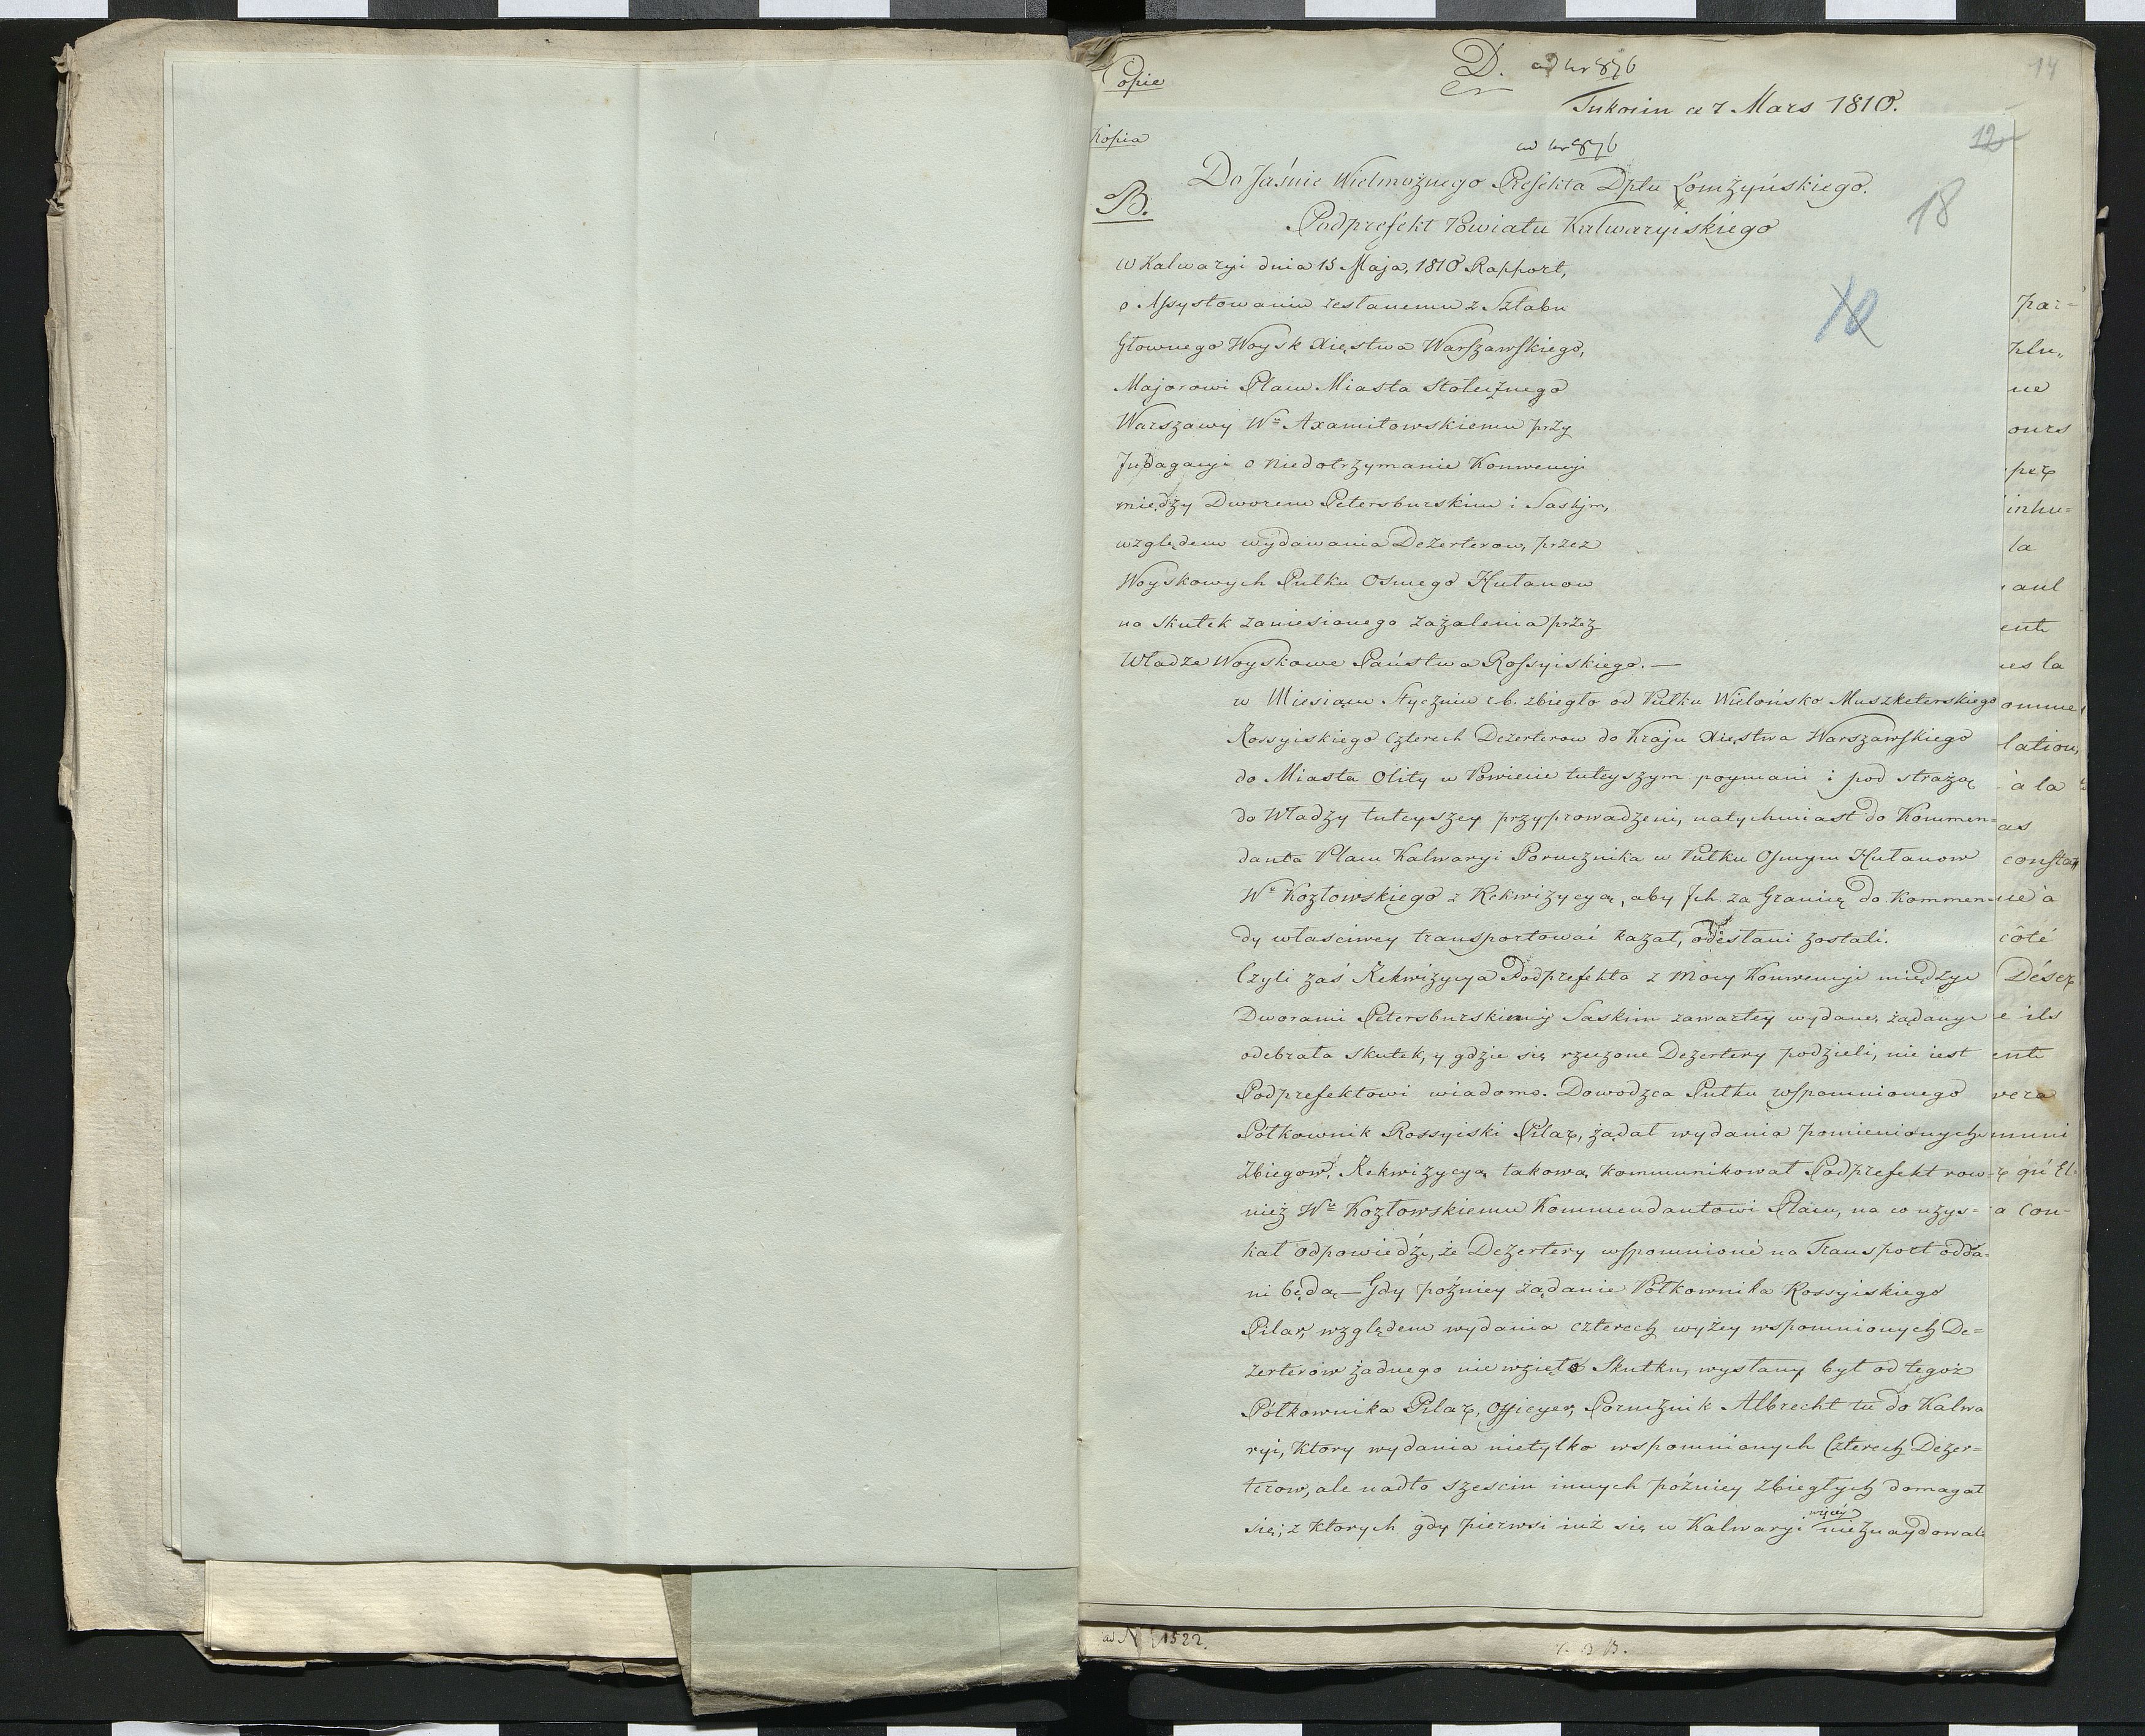 Copie
D. ad Nr 876
14
ce 7 Mars 1810.
Kopia
ad Nr 876
12
B.
Do Jaśnie Wielmożnego Prefekta Dptu Łomżyńskiego.
18
Podprefekt Powiatu Kalwaryiskiego
w Kalwaryi dnia 13 Maja, 1810 Rapport,
o Assystowaniu zesłanemu z Sztabu
Głownego Woysk Xięstwa Warszawskiego,
Majorowi Placu Miasta Stołecznego
Warszawy Wu Axamitowskiemu przy
Jndagacyi o niedotrzymanie Konwencyi
między Dworem Petersburskim i Saskim,
względem wydawania Dezerterow, przez
Woyskowych Pułku Osmego Hułanow
na skutek zaniesionego zażalenia przez
Władze Woyskowe Państwa Rossyiskiego. —
w Miesiącu Styczniu r.b. zbiegło od Pułku Wielońsko Muszketerskiego
Rossyiskiego Czterech Dezerterow do Kraju Xięstwa Warszawskiego
do Miasta Olity w Powiecie tuteyszym poymani i pod strażą
do Władzy tuteyszey przyprowadzeni, natychmiast do Kommen=
danta Placu Kalwaryi Porucznika w Pułku Osmym Hułanow
Wo Kozłowskiego z Rekwizycyą, aby Jch za Granicę do Kommen=
dy właściwey transportować kazał, odesłani zostali.
Czyli zaś Rekwizycya Podprefekta z Mocy Konwencyi między
Dworami Petersburskim y Saskim zawartey wydana, żądany
odebrała skutek, y gdzie się rzeczone Dezertery podzieli, nie iest
Podprefektowi wiadomo. Dowodzca Pułku wspomnionego
Półkownik Rossyiski Pilar, żądał wydania pomienionych
Zbiegow, Rekwizycyą takową kommunikował Podprefekt row=
nież Wu Kozłowskiemu Kommendantowi Placu, na co uzys=
kał odpowiedź, że Dezertery wspomnione na Transport odda=
ni będą — Gdy poźniey żądanie Półkownika Rossyiskiego
Pilar, względem wydania czterech wyżey wspomnionych De=
zerterów żadnego nie wzięło Skutku, wysłany był od tegoż
Półkownika Pilar, Officyer, Porucznik Albrecht tu do Kalwa
ryi, Ktory wydania nietylko wspomnionych Czterech Dezer=
terow, ale nadto sześciu innych poźniey zbiegłych domagał
się; z Ktorych gdy pierwsi iuż się w Kalwaryi więcéy nieznaydowali
par=
ne
ours
la
ent
es la
à la
as
côté
Déser
e ils
ent
vera
muni
a con-
ad N 1522.